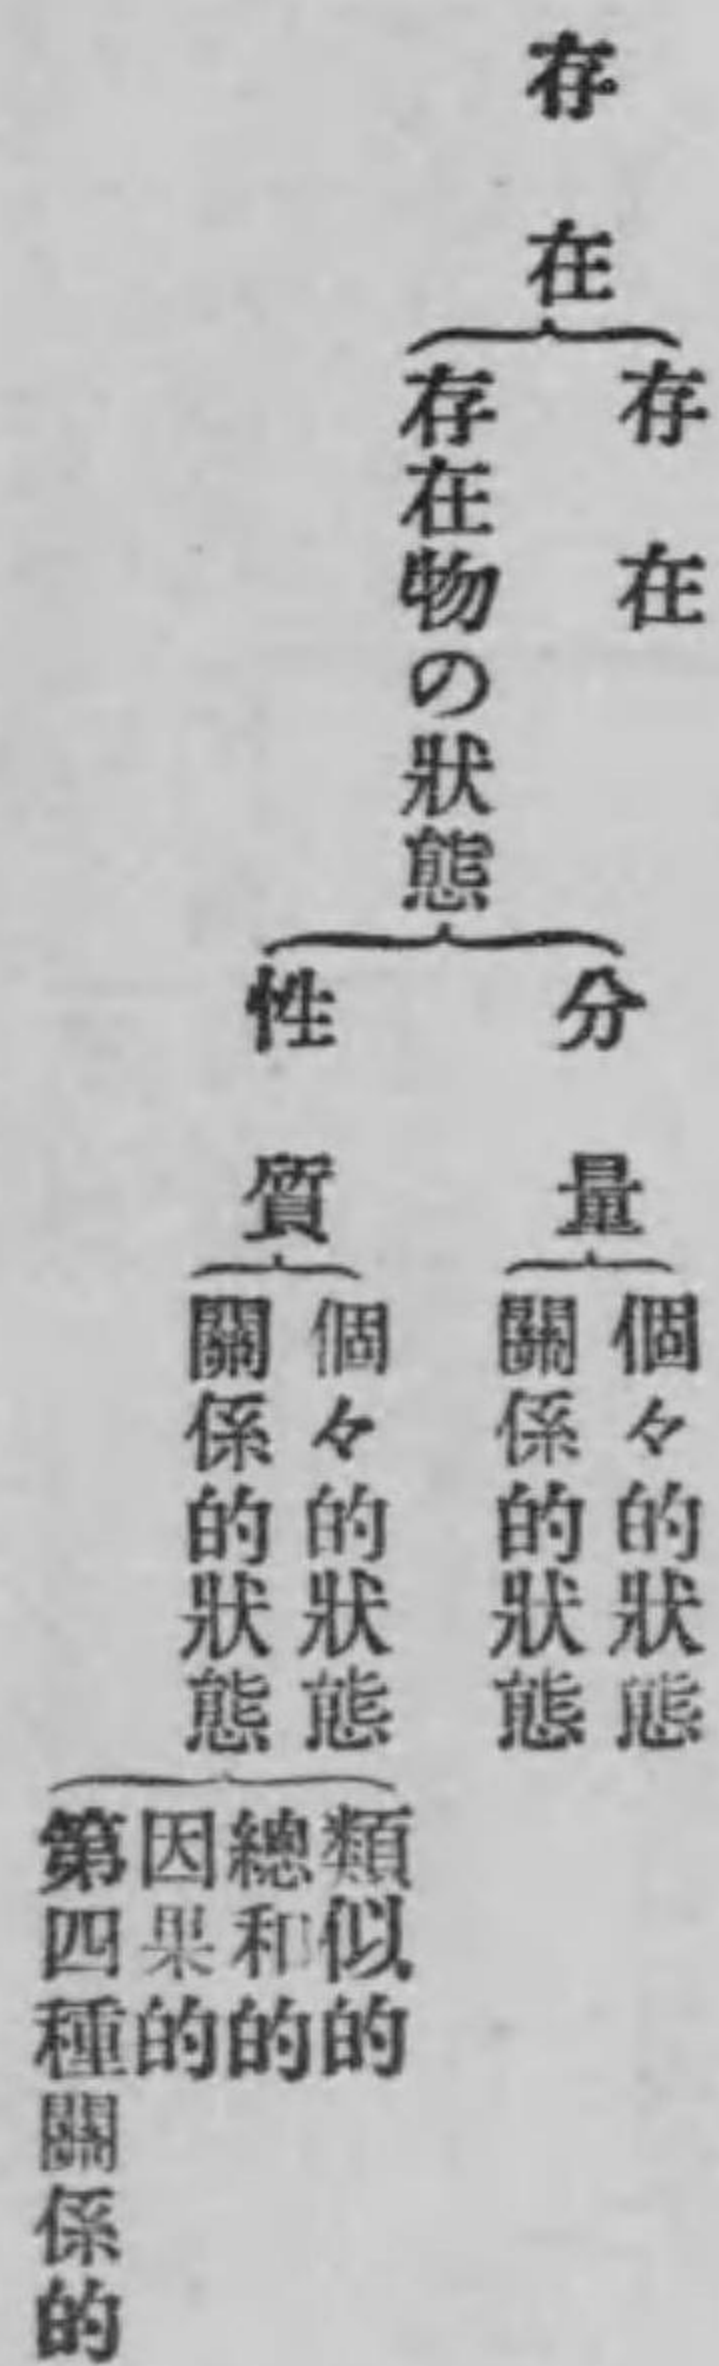 存在
存在
存在物の狀態
分量
個々的狀態
關係的狀態
性質
個々的狀態
關係的狀態
類似的
總和的
因果的
第四種關係的